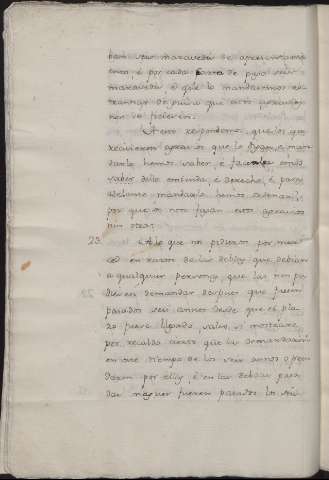 ban seis maravedis de aprescriamp
ento, é por cada Carta de pago seis
maravedis, é que lo mandasemos es
trannar de guisa que estos agravios
non se ficiesen.
A esto respondemos que los que
recivieron agravios que lo digan, é man
darlo hemos saber, é facerles
sobre ello emienda é derecho, é para
adelante mandarlo hemos estrannar
por que se non fagan estos agravios
nin otras
23. A lo que nos pidieron por mer
ced en razon de las debdas que debian
á qualquier persona, que las non pu
diesen demandar despues que fuesen
pasados seis annos desde que el pla
zo fuere llegado, salvo si mostrare
por recabdo cierto que la demandaron
en este tiempo de los seis annos o pren
daron por ellas, é en las debdas pasa
das maguer fueren pasados los seis